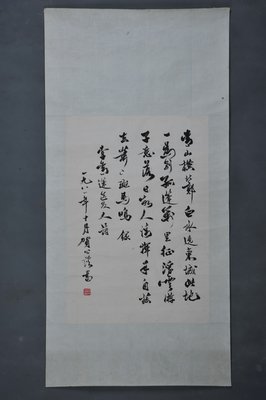 青山橫郭白水遶東城此地
一為別孤蓬萬里征浮雲游
子意落日故人情揮手自茲
去蕭〻斑馬鳴 錄
李白送友人詩
一九八一年十月書